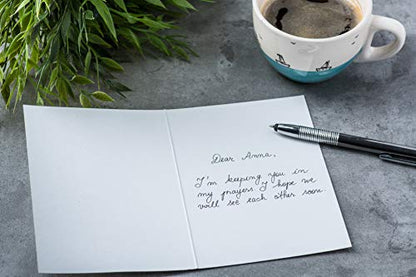 Dear Anna,
I'm keeping you in
my prayers I hope we
will see each other soon.